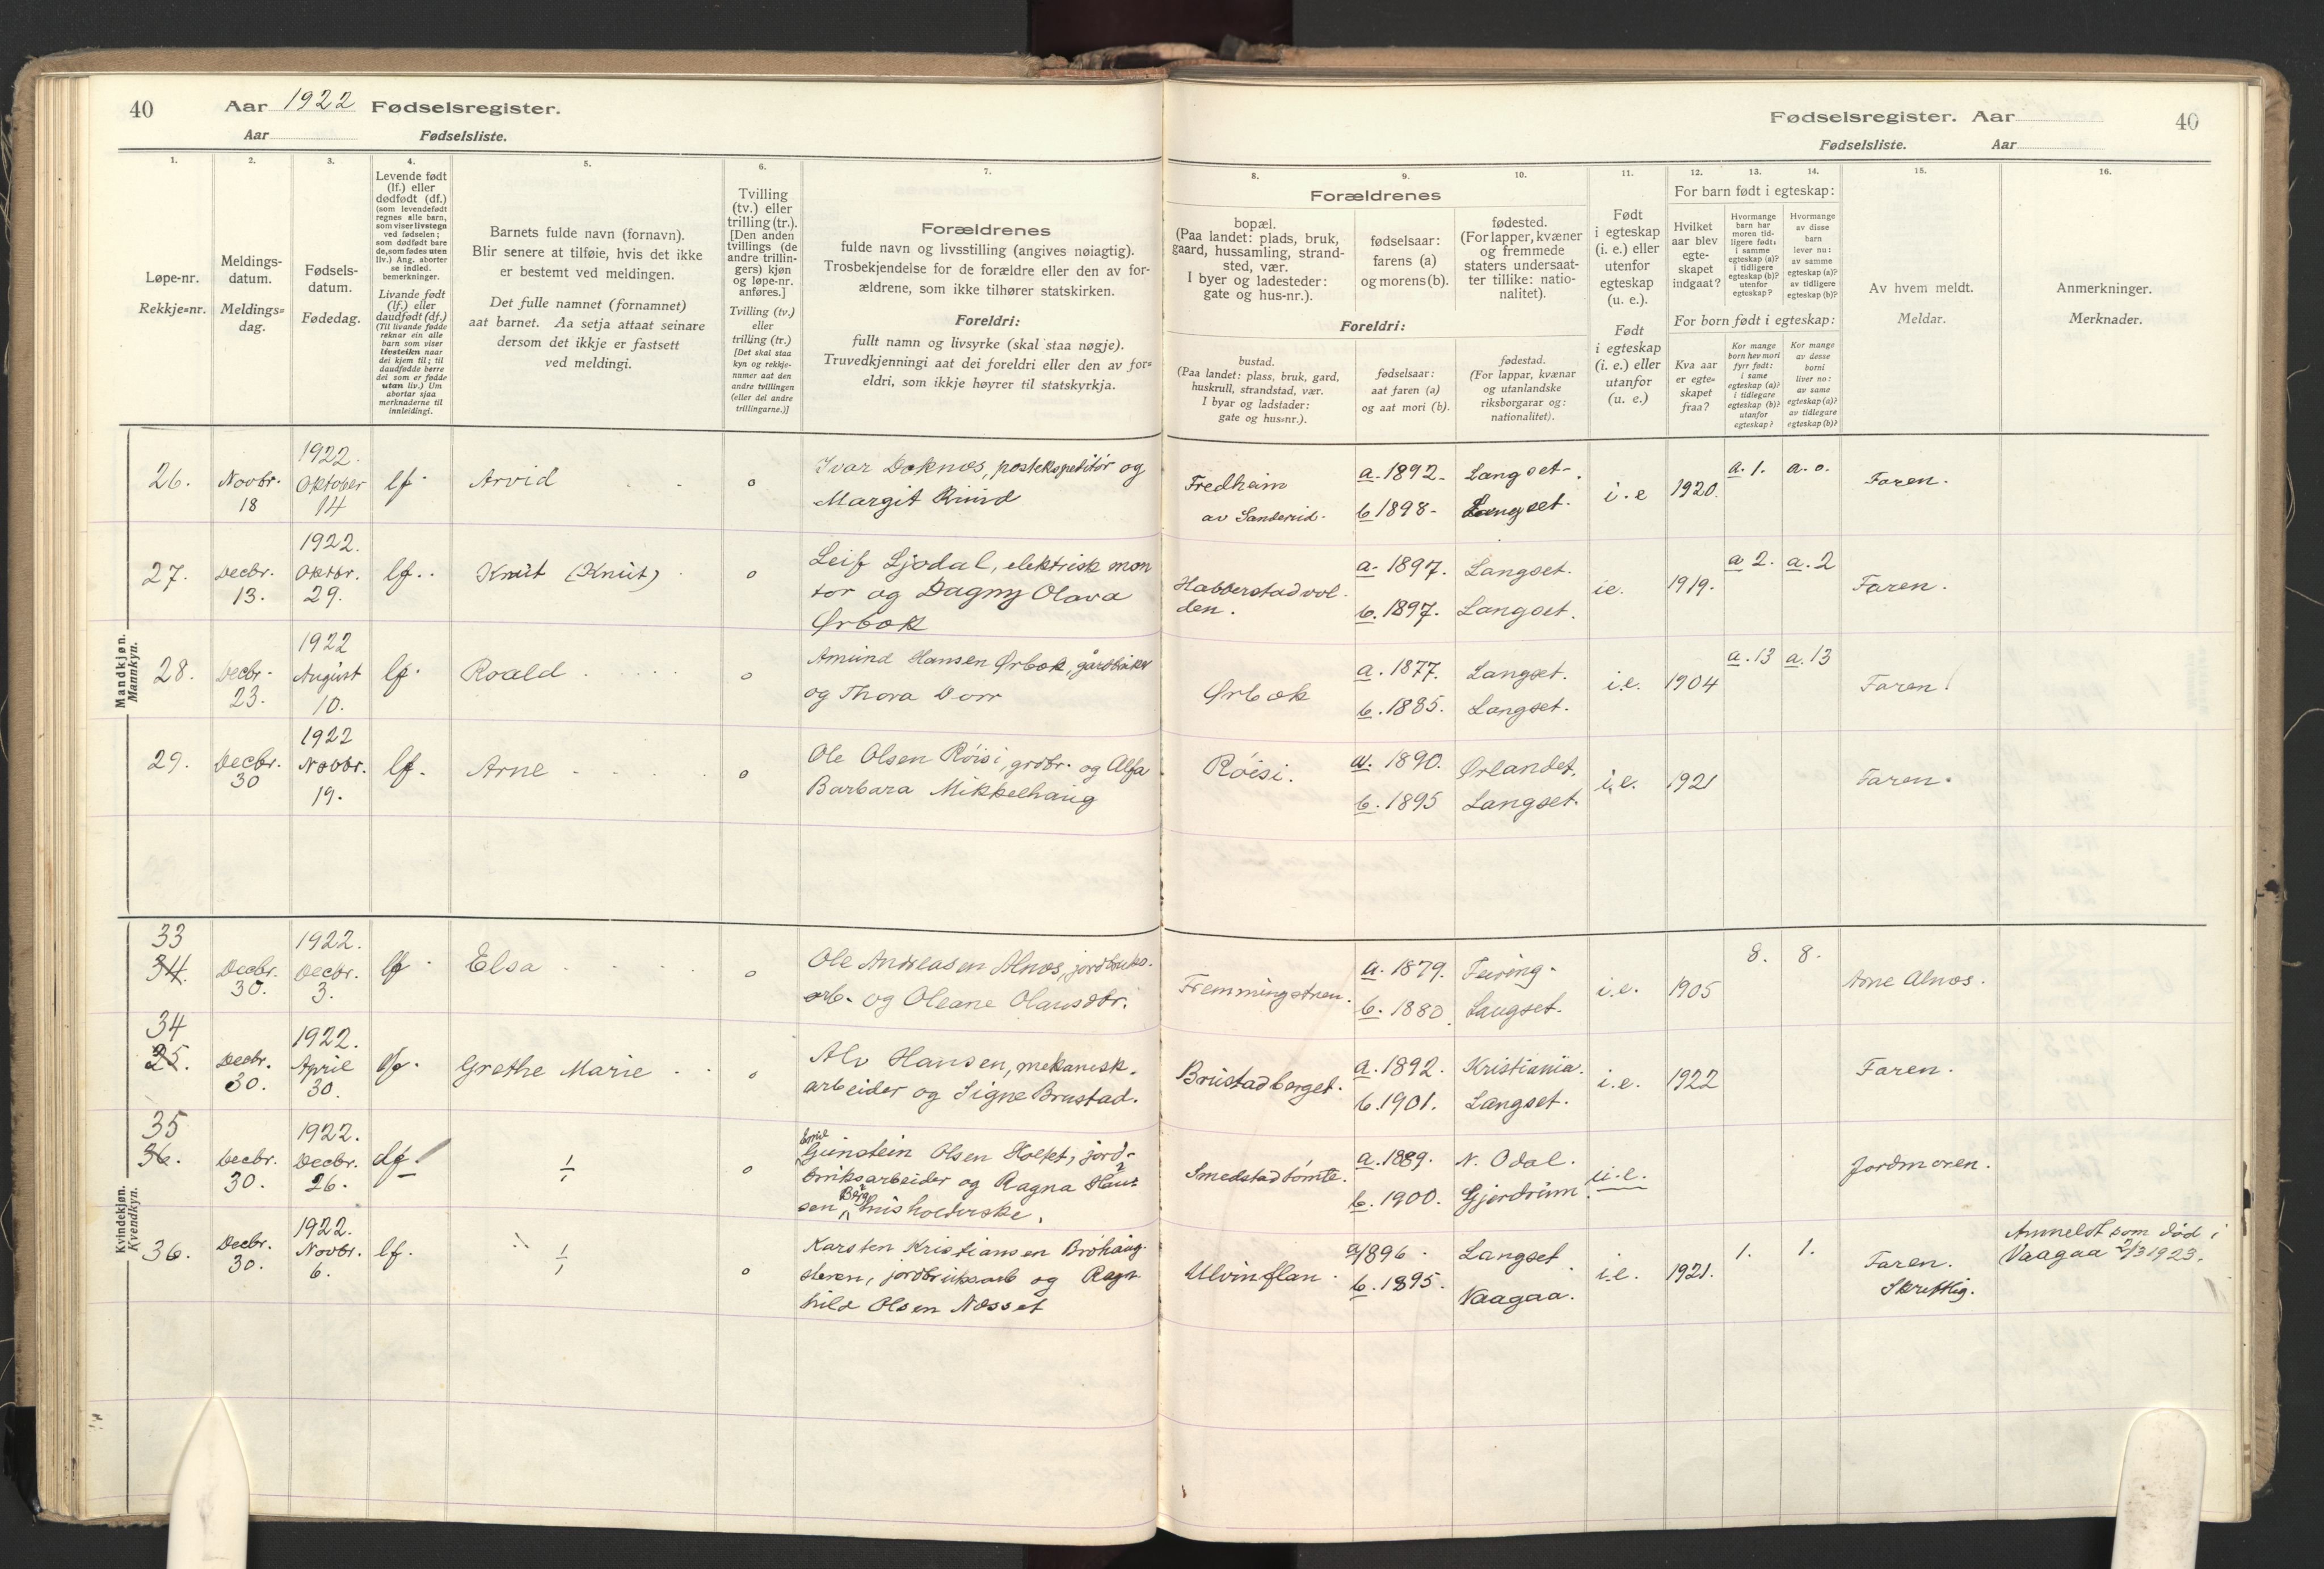 40 Aar 1922 Fødselsregister.
Aar Fødselsliste.
Fødselsregister. Aar 40
Fødselsliste. Aar
1. 2. 3. 4. 5. 6. 7. 8. 9. 10. 11. 12. 13. 14. 15. 16.
Løpe-nr.
Rekkje=nr.
Meldings-
datum.
Meldings=
dag.
Fødsels-
datum.
Fødedag.
Levende født
(lf.) eller
dødfødt (df.)
(som levendefødt
regnes alle barn,
som viser livstegn
ved fødselen;
som dødfødt bare
de, som fødes uten
liv.) Ang. aborter
se indled.
bemerkninger.
Livande født
(lf.) eller
daudfødt (df.)
(Til livande fødde
reknar ein alle
barn som viser
livsteikn naar
dei kjem til; til
daudfødde berre
dei som er fødde
utan liv.) Um
abortar sjaa
merknaderne til
innleidingi.
Barnets fulde navn (fornavn).
Blir senere at tilføie, hvis det ikke
er bestemt ved meldingen.
Det fulle namnet (fornamnet)
aat barnet. Aa setja attaat seinare
dersom det ikkje er fastsett
ved meldingi.
Tvilling
(tv.) eller
trilling (tr.).
[Den anden
tvillings (de
andre trillin-
gers) kjøn
og løpe-nr.
anføres.]
Tvilling (tv.)
eller
trilling (tr.)
[Det skal staa
kyn og rekkje-
numer aat den
andre tvillingen
(eller dei andre
trillingarne.)]
Forældrenes
fulde navn og livsstilling (angives nøiagtig).
Trosbekjendelse for de forældre eller den av for-
ældrene, som ikke tilhører statskirken.
Foreldri:
fullt namn og livsyrke (skal staa nøgje).
Truvedkjenningi aat dei foreldri eller den av for=
eldri, som ikkje høyrer til statskyrkja.
Forældrenes
bopæl.
(Paa landet: plads, bruk,
gaard, hussamling, strand-
sted, vær.
I byer og ladesteder:
gate og hus-nr.).
fødselsaar:
farens (a)
og morens (b).
fødested.
(For lapper, kvæner
og fremmede
staters undersaat-
ter tillike: natio-
nalitet).
Foreldri:
bustad.
(Paa landet: plass, bruk, gard,
huskrull, strandstad, vær.
I byar og ladstader:
gate og hus=nr.).
fødselsaar:
aat faren (a)
og aat mori (b).
fødestad.
(For lappar, kvænar
og utanlandske
riksborgarar og:
nationalitet).
Født
i egteskap
(i. e.) eller
utenfor
egteskap
(u. e.).
Født
i egteskap
(i. e.) eller
utanfor
(u. e.)
For barn født i egteskap:
Hvilket
aar blev
egte-
skapet
indgaat?
Hvormange
barn har
moren tid-
ligere født:
i samme
egteskap (a)?
i tidligere
egteskap (b)?
utenfor
egteskap?
Hvormange
av disse
barn
lever nu:
av samme
egteskap (a)?
av tidligere
egteskap (b)?
For born født i egteskap:
Kva aar
er egte=
skapet
fraa?
Kor mange
born hev mori
fyrr født:
i same
egteskap (a)?
i tidlegare
egteskap (b)?
utanfor
egteskap?
Kor mange
av desse
borni
liver no:
av same
egteskap (a)?
av tidlegare
egteskap (b)?
Av hvem meldt.
Meldar.
Anmerkninger.
Merknader.
Mandkjøn.
Mannkyn.
26. Novbr. 18 1922. Oktober 14 lf. Arvid o
Ivar Doknos, postekspeditør og
Margit Ruud
Fredheim
av Sanderud.
a. 1892. Langset.
b 1898. Langset.
i.e 1920. a. 1. a. o. Faren.
27. Decbr. 13. 1922. Oktbr. 29. lf. Knut (Knut) o
Leif Ljødal, elektrisk mon
tør og Dagny Olava
Ørbæk
Habberstadvol
den.
a. 1897. Langset.
b. 1897. Langset.
ie. 1919. a 2. a. 2 Faren.
28. Decbr. 23. 1922 August 10. lf. Roald o
Amund Hansen Ørbæk, gårdbruker
og Thora Dorr
Ørbæk
a. 1877. Langset.
b. 1885. Langset.
i.e. 1904 a. 13 a. 13 Faren.
29. Decbr. 30 1922 Novbr. 19. lf. Arne o
Ole Olsen Røisi, grdbr. og Alfa
Barbara Mikkelhaug
Røisi.
a. 1890. Ørlandet.
b. 1895 Langset.
i.e. 1921 Faren.
Kvindekjøn.
Kvendkyn.
33
34. Decbr. 30. 1922. Decbr. 3. lf. Elsa o
Ole Andreasen Alnes, jordbruks.
arb. og Oleane Olausdtr.
Fremmingstuen.
a. 1879. Feiring.
b. 1880. Langset.
i.e. 1905 8. 8. Arne Alnes.
34
35. Decbr. 30. 1922. April 30. lf. Grethe Marie o
Alv Hansen, mekanisk.
arbeider og Signe Brustad.
Brustadberget.
a. 1892. Kristiania.
b. 1901. Langset.
i.e. 1922 Faren.
35
36. Decbr. 30. 1922. Decbr. 26. df. o
Gunstein Olsen Holt, jord-
bruksarbeider og Ragna Han-
sen Berg husholderske.
Smedstadtomte.
a. 1889. N. Odal.
b. 1900. Gjerdrum.
u.e. Jordmoren.
36. Decbr. 30. 1922. Novbr. 6. lf. o
Karsten Kristiansen Brøhaug-
steren, jordbruksarb og Ragn-
hild Olsen Næsset
Ulvinflan.
a 1896. Langset
b. 1895. Vaagaa.
i.e. 1921. 1. 1. Faren.
Skriftlig.
Anmeldt som død i
Vaagaa 2/3 1923.